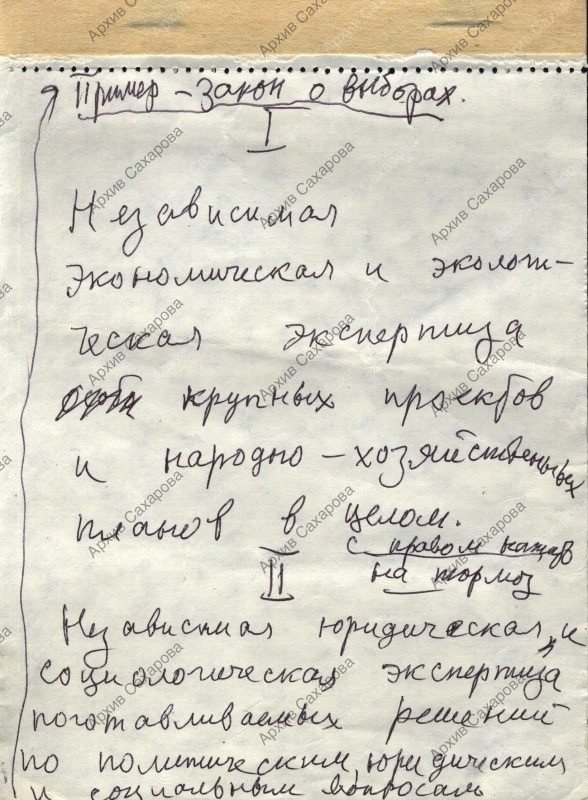 Пример – Закон о выборах.
I
Независимая
экономическая и экологи-
ческая экспертиза
крупных проектов
и народно-хозяйственных
планов в целом.
с правом нажать
на тормоз
II
Независимая юридическая и
социологическая экспертиза
поготавливаемых решений
по политическим, юридическим
и социальным вопросам